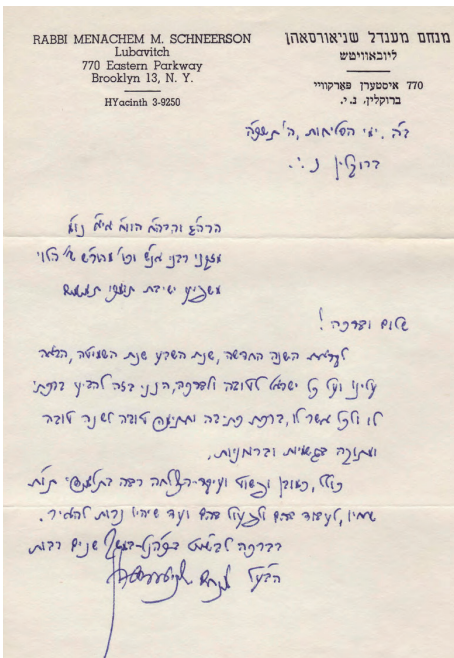 RABBI MENACHEM M. SCHNEERSON
Lubavitch
770 Eastern Parkway
Brooklyn 13, N. Y.
HYacinth 3-9250
מנחם מענדל שניאורסאהן
ליובאוויטש
770 איסטערן פארקוויי
ברוקלין, נ. י.
ב"ה. ימי הסליחות,
ברוקלין נ.י.
הרה"ג והרה"ח הוו"ח אי"א נו"נ
רבני אנ"ש וכו' שי' הלוי
ישיבת תומכי תמימים
שלום וברכה!
לקראת השנה החדשה, שנת השבע שנת השמיטה, הבאה
עלינו ועל כל ישראל לטובה ולברכה, הנני בזה להביע ברכתי
לו ולכל אשר לו, ברכת כתיבה וחתימה טובה לשנה טובה
ומתוקה בגשמיות וברוחניות.
כולל, כמובן ופשוט ועיקר-הצלחה רבה בתלמידי
שיחיו, לעבוד בהם ולפעול בהם ועד שיהיו נרות להאיר.
בברכה שנים רבות
מנחם